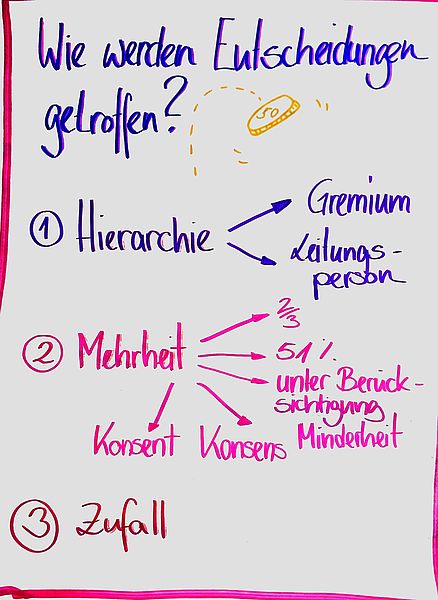 Wie werden Entscheidungen
getroffen?
50
① Hierarchie
Gremium
Leitungs-
person
② Mehrheit
2/3
51%
unter Berück-
sichtigung
Minderheit
Konsent Konsens
③ Zufall